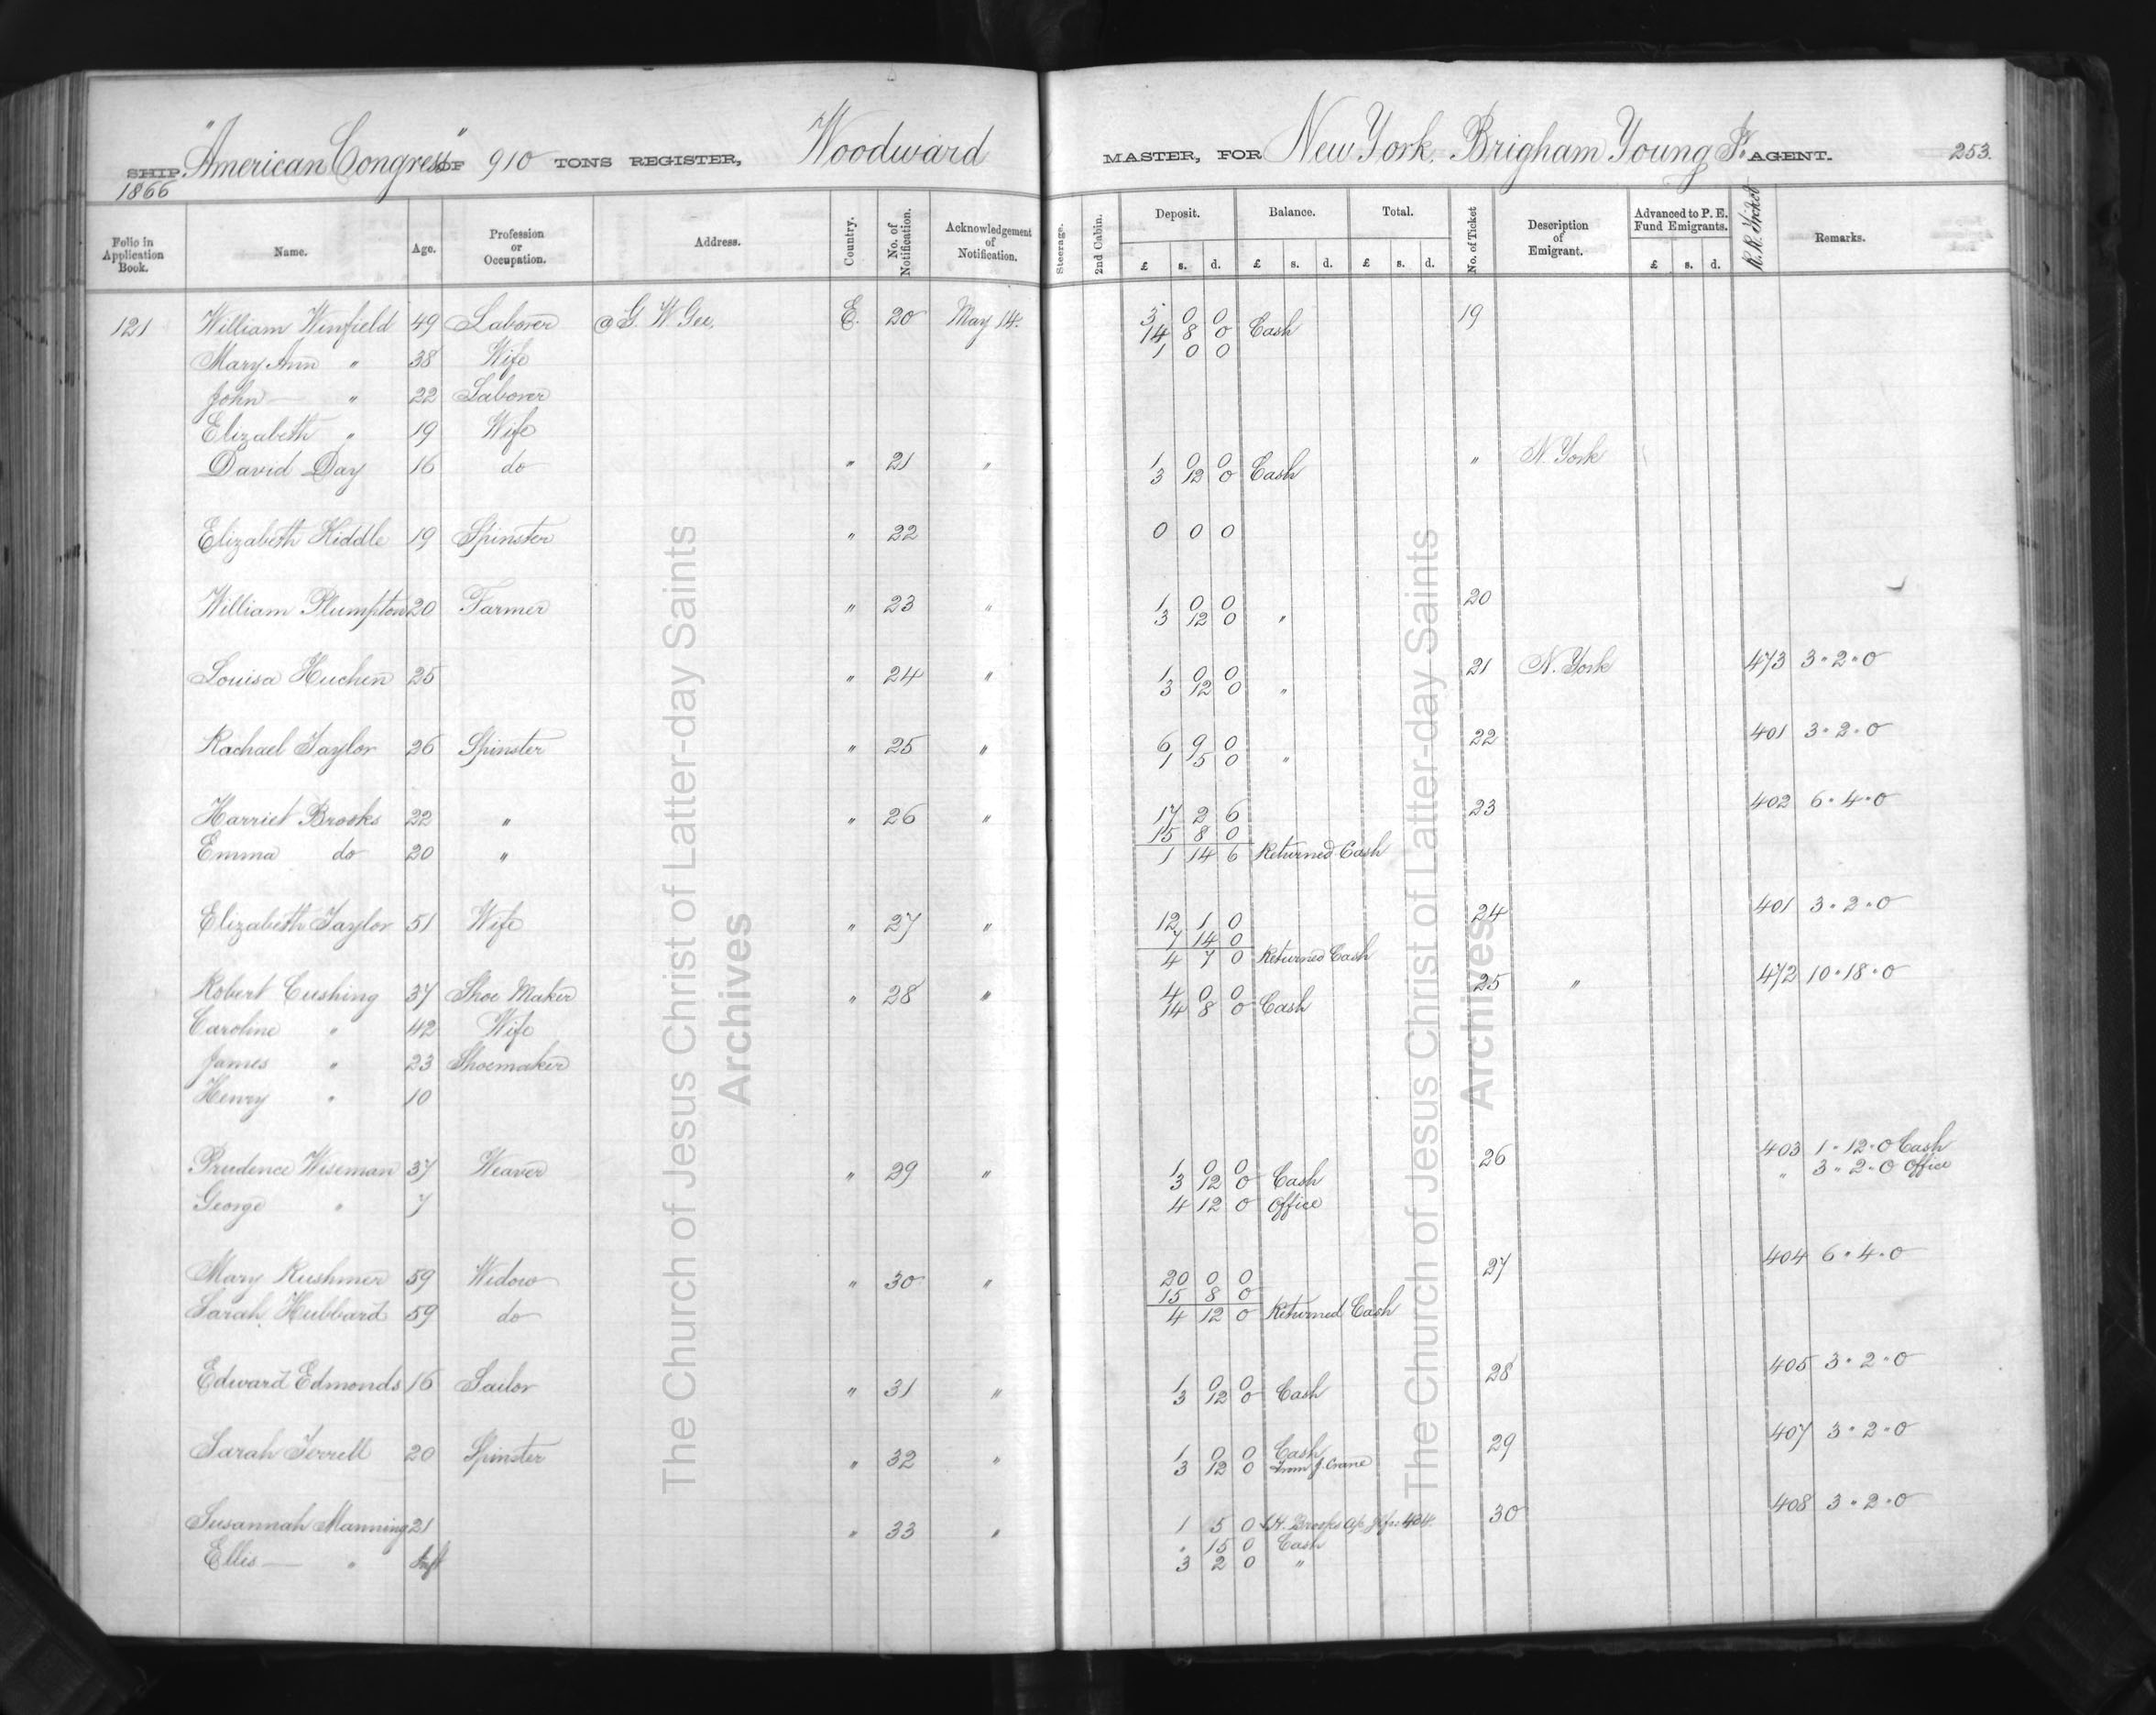 SHIP "American Congress" OF 910 TONS REGISTER, Woodward MASTER, FOR New York. Brigham Young Jr. AGENT. 253.
1866
Folio in Application Book. Name. Age. Profession or Occupation. Address. Country. No. of Notification. Acknowledgement of Notification. Steerage. 2nd Cabin. Deposit. Balance. Total. No. of Ticket Description of Emigrant. Advanced to P. E. Fund Emigrants. R.R. Ticket Remarks.
£ s. d. £ s. d. £ s. d. £ s. d.
121 William Winfield 49 Laborer G. W. Gee. E. 20 May 14. 3 0 0 19
14 8 0 Cash
Mary Ann " 38 Wife 1 0 0
John — " 22 Laborer
Elizabeth " 19 Wife
David Day 16 do " 21 " 1 0 0 " N. York
3 12 0 Cash
Elizabeth Hiddle 19 Spinster " 22 0 0 0
William Plumpton 20 Farmer " 23 " 1 0 0 20
3 12 0 "
Louisa Huchen 25 " 24 " 1 0 0 21 N. York 473 3 " 2 " 0
3 12 0 "
Rachael Taylor 26 Spinster " 25 " 6 9 0 22 401 3 " 2 " 0
1 5 0 "
Harriet Brooks 22 " " 26 " 17 2 6 23 402 6 " 4 " 0
15 8 0
Emma do 20 " 1 14 6 Returned Cash
Elizabeth Taylor 51 Wife " 27 " 12 1 0 24 401 3 " 2 " 0
7 14 0
4 7 0 Returned Cash
Robert Cushing 37 Shoe Maker " 28 " 4 0 0 25 " 472 10 " 18 " 0
14 8 0 Cash
Caroline " 42 Wife
James " 23 Shoemaker
Henry " 10
Prudence Wiseman 37 Weaver " 29 " 1 0 0 26 403 1 " 12 " 0 Cash
3 12 0 Cash " 3 " 2 " 0 Office
George " 7 4 12 0 Office
Mary Rushmer 59 Widow " 30 " 20 0 0 27 404 6 " 4 " 0
15 8 0
Sarah Hubbard 59 do 4 12 0 Returned Cash
Edward Edmonds 16 Sailor " 31 " 1 0 0 28 405 3 " 2 " 0
3 12 0 Cash
Sarah Terrell 20 Spinster " 32 " 1 0 0 Cash 29 407 3 " 2 " 0
3 12 0 From J. Crane
Susannah Manning 21 " 33 " 1 5 0 H. Brooks 30 408 3 " 2 " 0
" 15 0 Cash
Ellis — " Inft 3 2 0 "
The Church of Jesus Christ of Latter-day Saints
Archives
The Church of Jesus Christ of Latter-day Saints
Archives